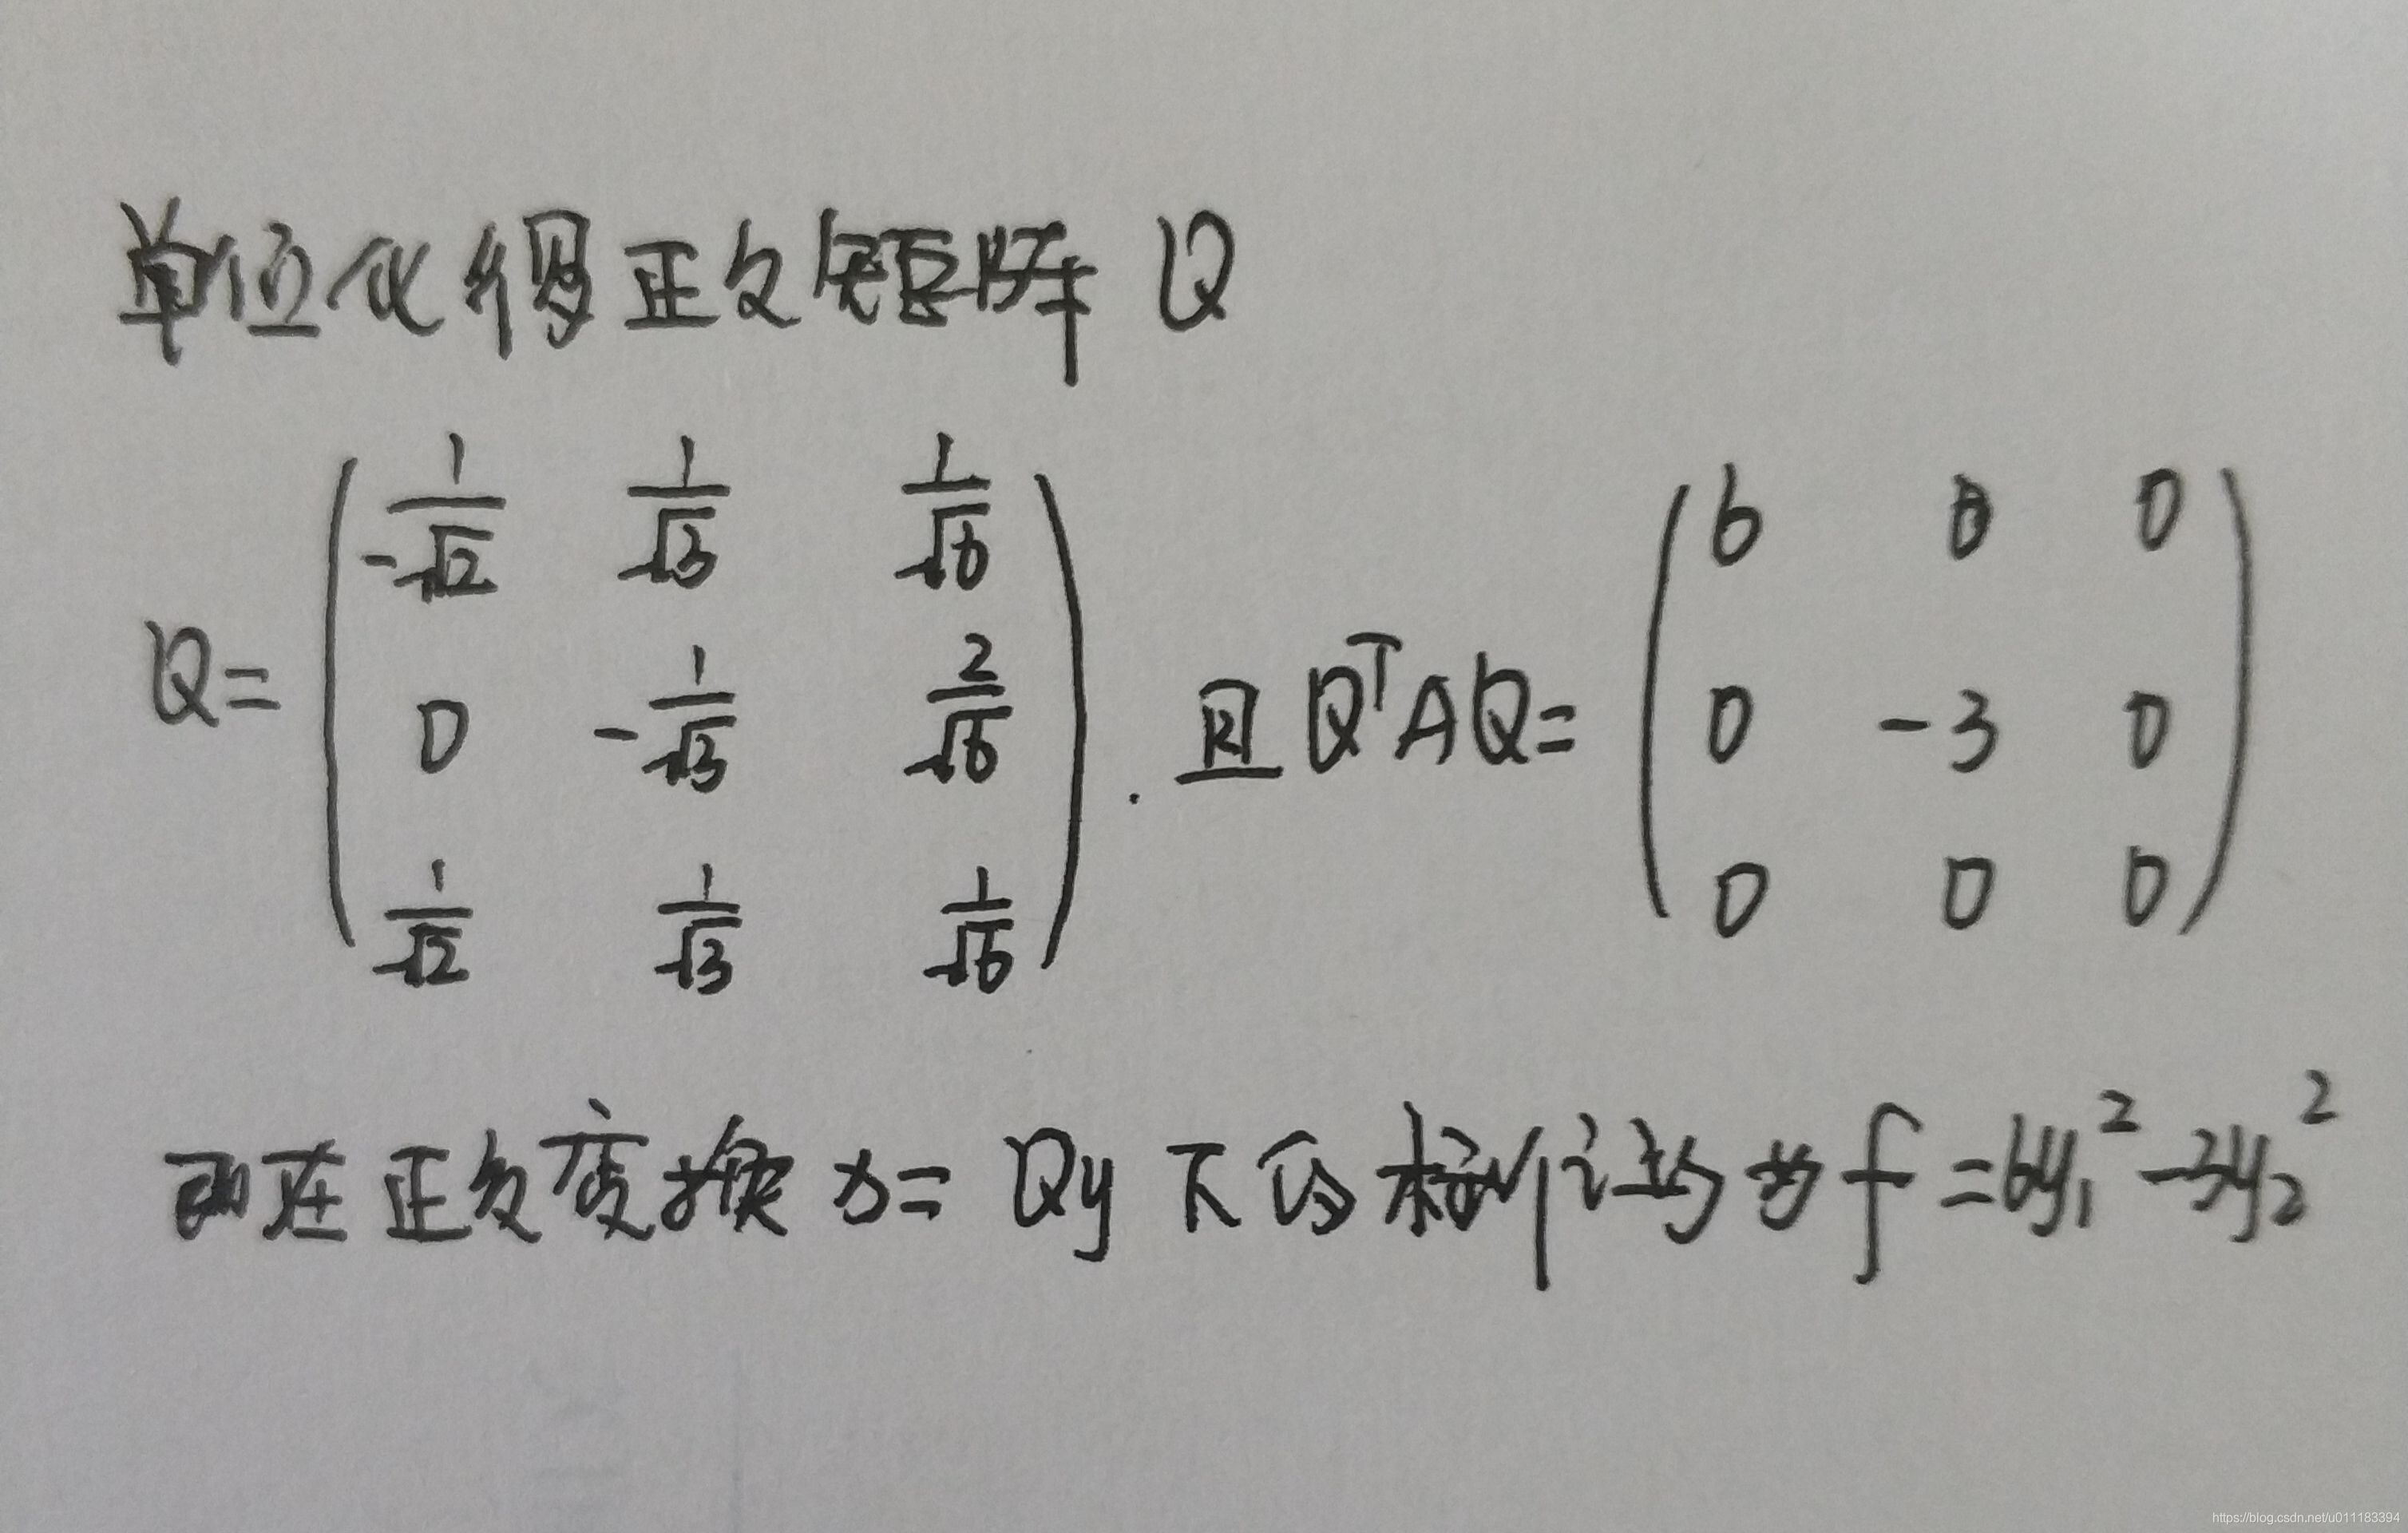 单位化得正交矩阵 Q
Q= ( 1/-√2 1/√3 1/√6
0 -1/√3 2/√6
1/√2 1/√3 1/√6 ) . 且 QᵀAQ= ( 6 0 0
0 -3 0
0 0 0 )
f在正交变换 x= Qy 下的标准形为 f = 6y₁² -3y₂²
https://blog.csdn.net/u011183394